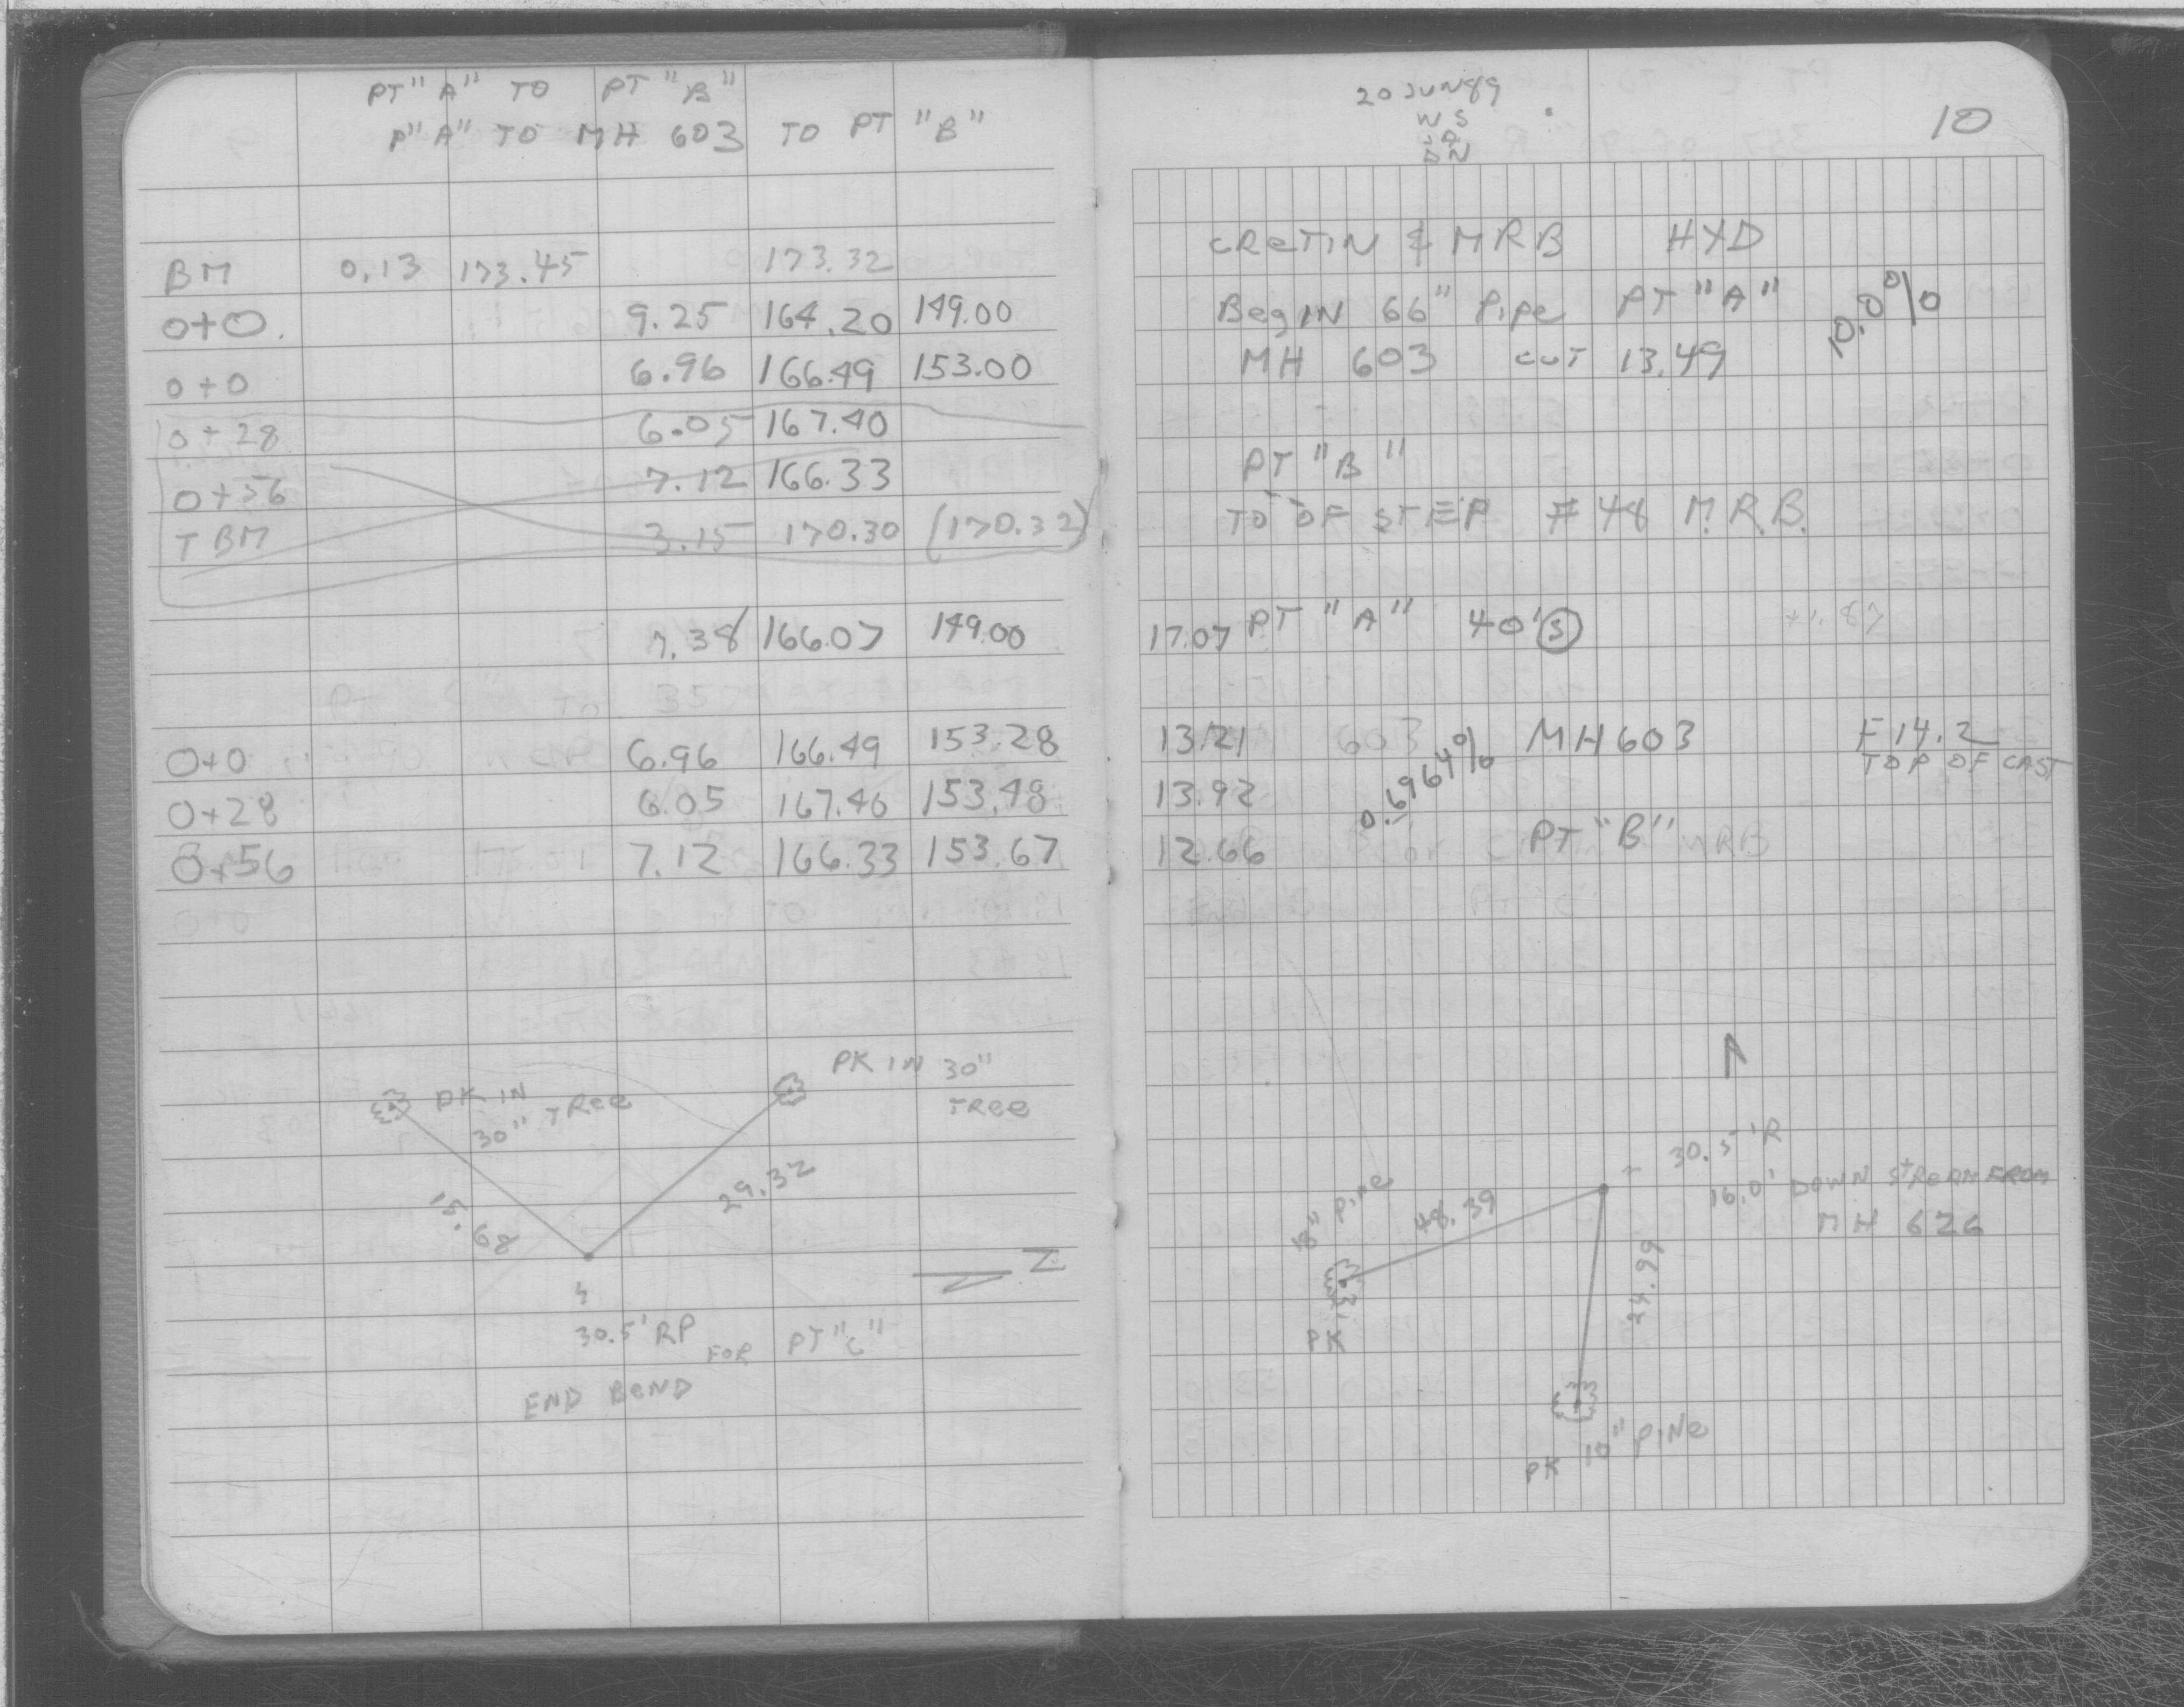 PT "A" TO PT "B"
P "A" TO MH 603 TO PT "B"
BM 0.13 173.45 173.32
0+0. 9.25 164.20 149.00
0+0 6.96 166.49 153.00
0+28 6.05 167.40
0+56 7.12 166.33
TBM 3.15 170.30 (170.32)
7.38 166.07 149.00
0+0 6.96 166.49 153.28
0+28 6.05 167.40 153.48
0+56 7.12 166.33 153.67
PK IN
30" TRee
PK IN 30"
TRee
15.68
29.32
Z
30.5' RP FOR PT "C"
END BEND
20 JUN 89
WS
DN
10
CReTIN & MRB HYD
BegIN 66" Pipe PT "A"
10.0%
MH 603 CUT 13.49
PT "B"
TO OF STEP # 48 M.R.B.
17.07 PT "A" 40' S
13.21 603 MH 603 F 14.2
TOP OF CAST
13.92 0.6964%
12.66 PT "B"
30.5' R
16.0' DOWN STReAM FROM
MH 626
18" PiNe
48.39
24.99
PK
PK 10" PiNe